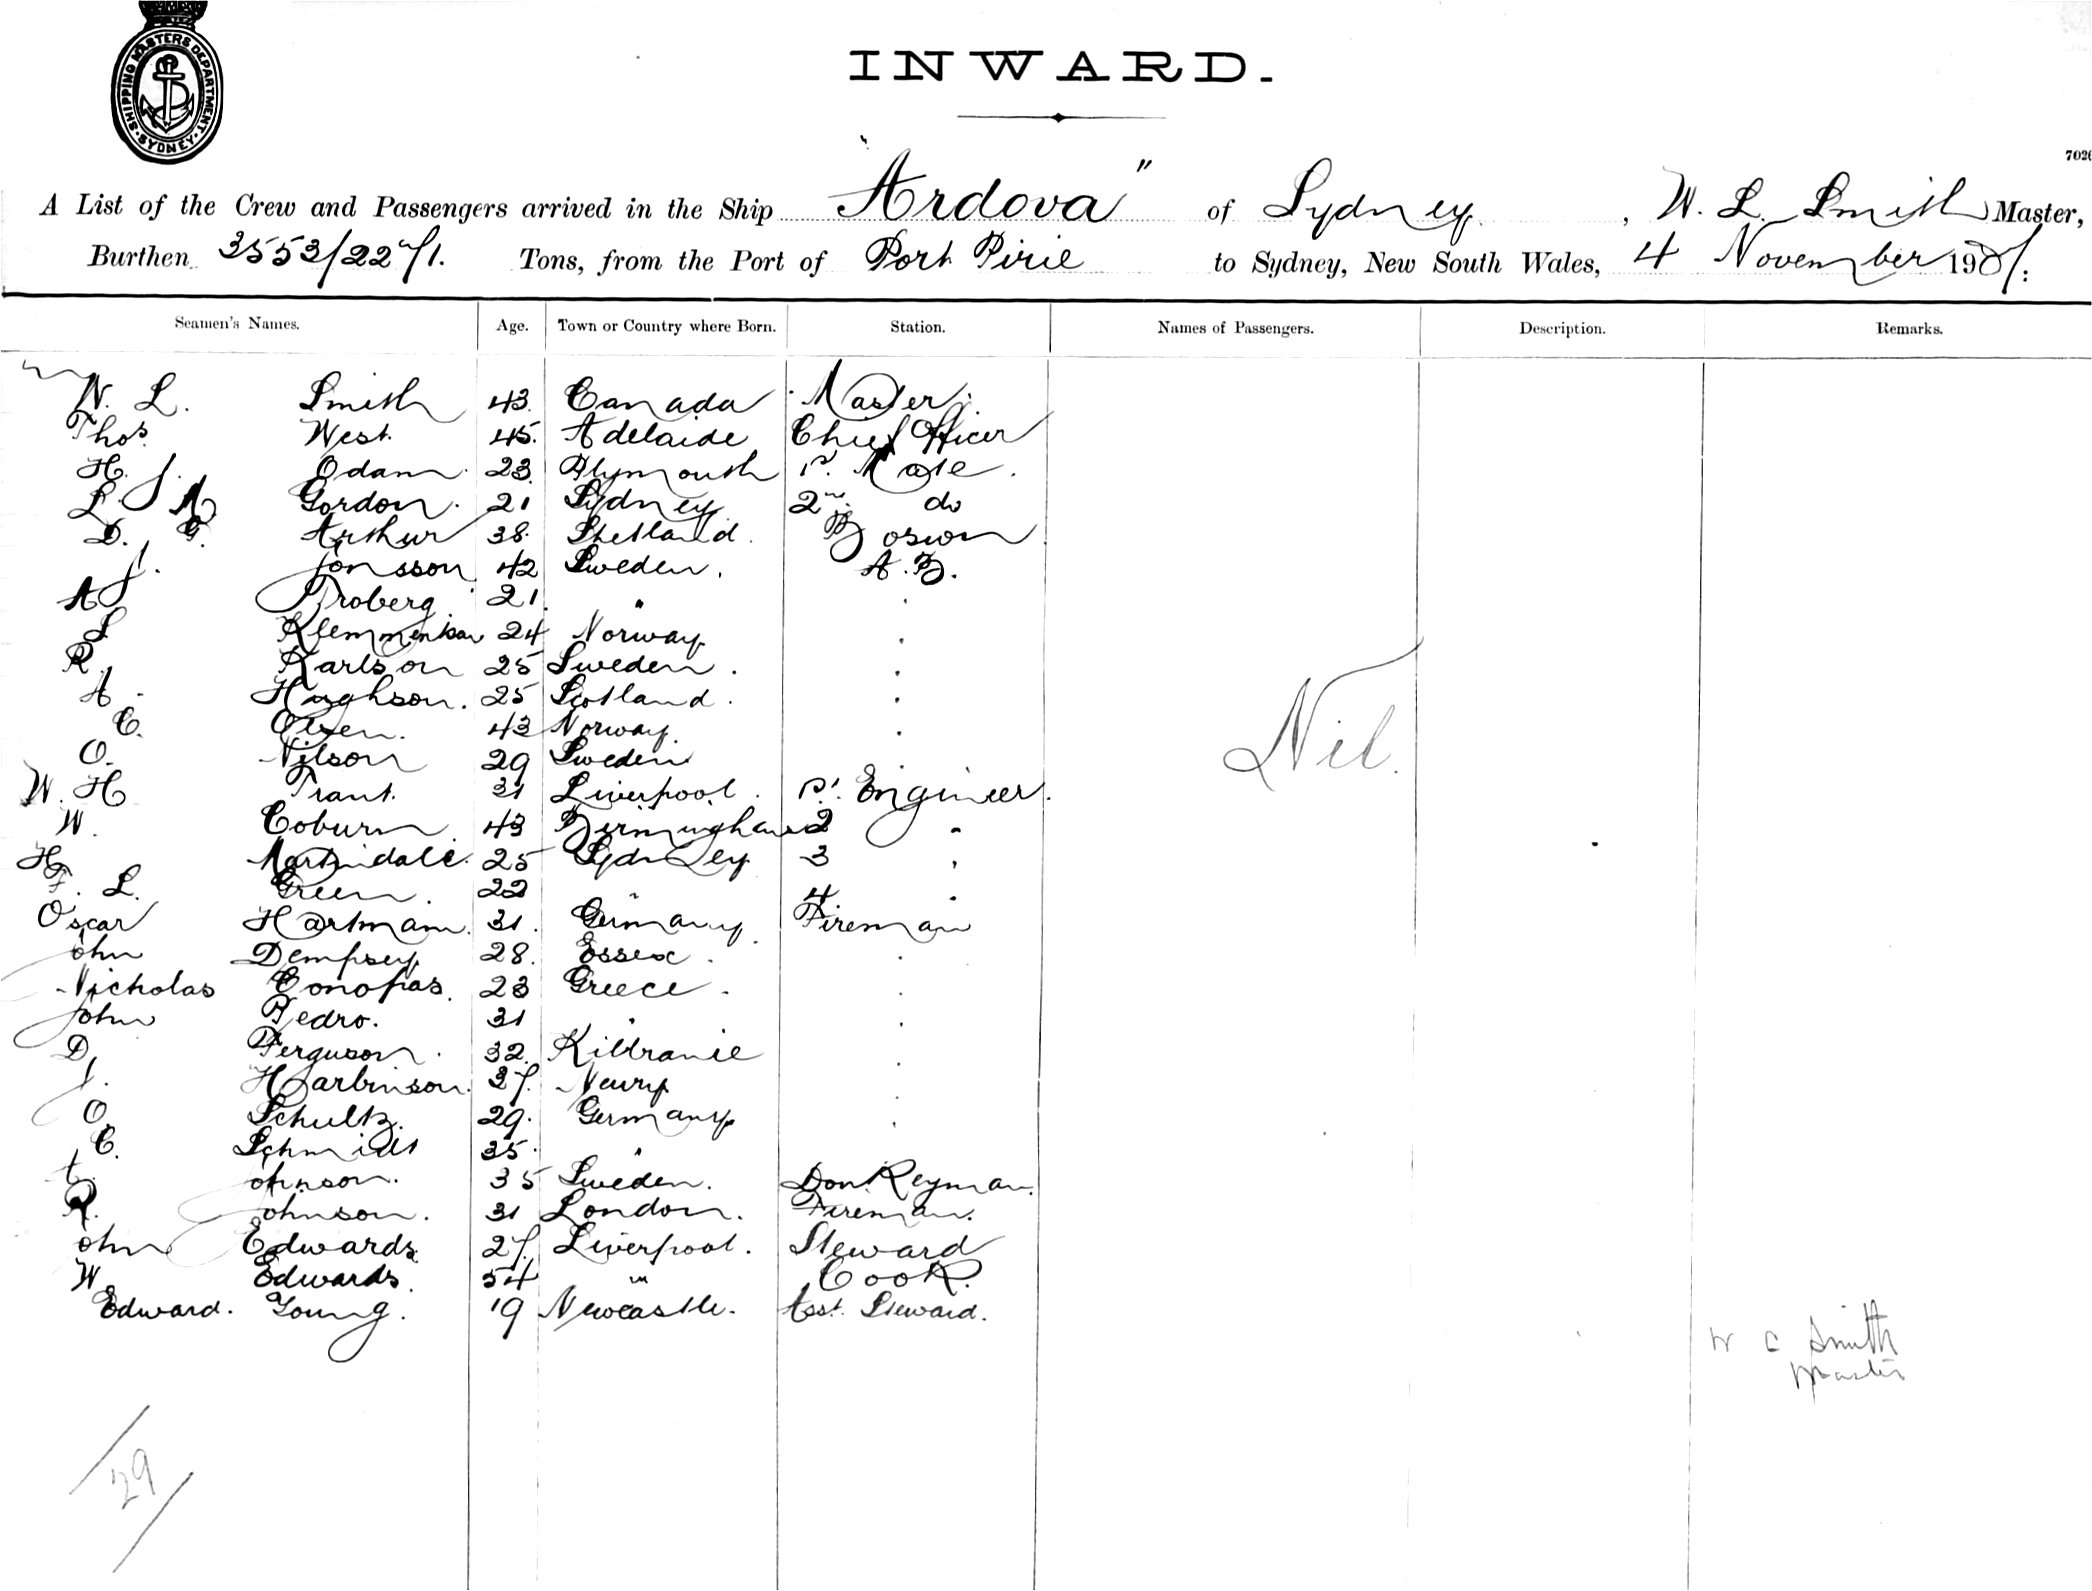 SHIPPING MASTERS DEPARTMENT SYDNEY
INWARD.
7026
A List of the Crew and Passengers arrived in the Ship "Ardova" of Sydney, W. L. Smith Master,
Burthen 3553/2271. Tons, from the Port of Port Pirie to Sydney, New South Wales, 4 November 1901.
Seamen's Names. Age. Town or Country where Born. Station. Names of Passengers. Description. Remarks.
W. L. Smith 43. Canada Master.
Thos. West. 45. Adelaide Chief Officer
H. J. Odam 23. Plymouth 1st. Mate.
L. A Gordon. 21 Sydney 2nd. do
D. G. Arthur 38. Shetland. Boswn
J. Jonsson 42 Sweden. A.B.
A J Troberg 21. " "
S Klemmentsen 24 Norway "
R. Karlson 25 Sweden. "
A. Hughson. 25 Scotland. "
C. Olsen. 43 Norway. "
O. Nilson 29 Sweden "
W. H Trant. 31 Liverpool. 1st. Engineer.
W. Coburn 43 Birmingham 2 "
H Martindale. 25 Sydney 3 "
F. L. Green. 22 " 4 "
Oscar Hartmann. 31. Germany. Fireman
John Dempsey 28. Essex. "
Nicholas Conopas. 23 Greece. "
John Pedro. 31 " "
D. Ferguson. 32. Kilranie "
J. Harbinson. 37. Newry "
O. Schultz. 29. Germany "
C. Schmidt 35. "
Johnson. 35 Sweden. Donkeyman.
R. Johnson. 31 London. Fireman.
John Edwards 27. Liverpool. Steward
W Edwards. 54 " Cook.
Edward. Young. 19 Newcastle. Asst. Steward.
Nil.
W C Smith
Master
29